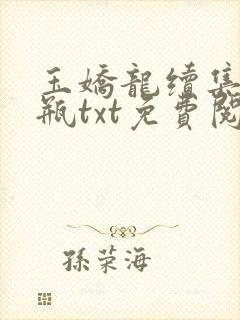 玉嬌龍續集
瓶txt免費閱
孫荣海